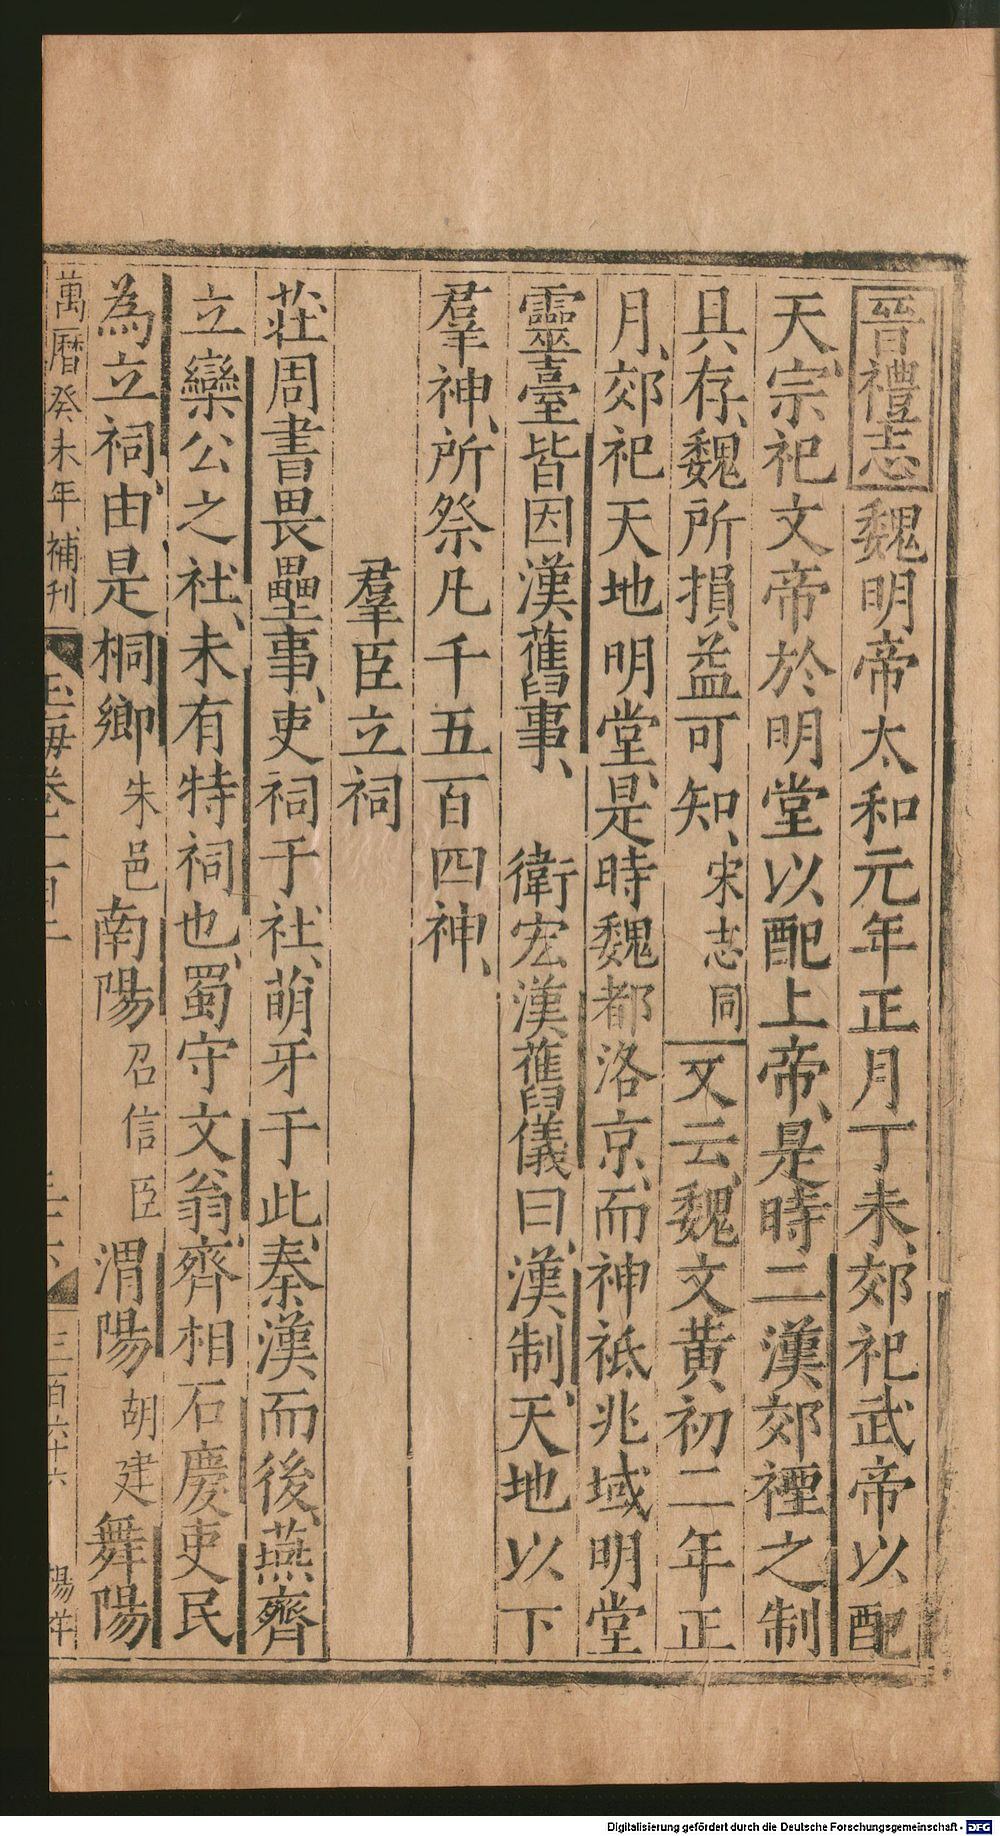 晉禮志魏明帝太和元年正月丁未、郊祀武帝以配
天、宗祀文帝於明堂以配上帝、是時二漢郊禋之制
具存、魏所損益可知、宋志同又云、魏文黃初二年正
月、郊祀天地明堂、是時魏都洛京、而神祗兆域明堂
靈臺皆因漢舊事、　衛宏漢舊儀曰、漢制、天地以下
羣神、所祭凡千五百四神、
羣臣立祠
莊周書畏壘事、吏祠于社、萌牙于此、秦漢而後、燕齊
立欒公之社、未有特祠也、蜀守文翁、齊相石慶吏民
為立祠、由是桐鄉朱邑南陽召信臣渭陽胡建舞陽
萬曆癸未年補刊
玉海卷一百二
三百六十六
楊祥
Digitalisierung gefördert durch die Deutsche Forschungsgemeinschaft - DFG